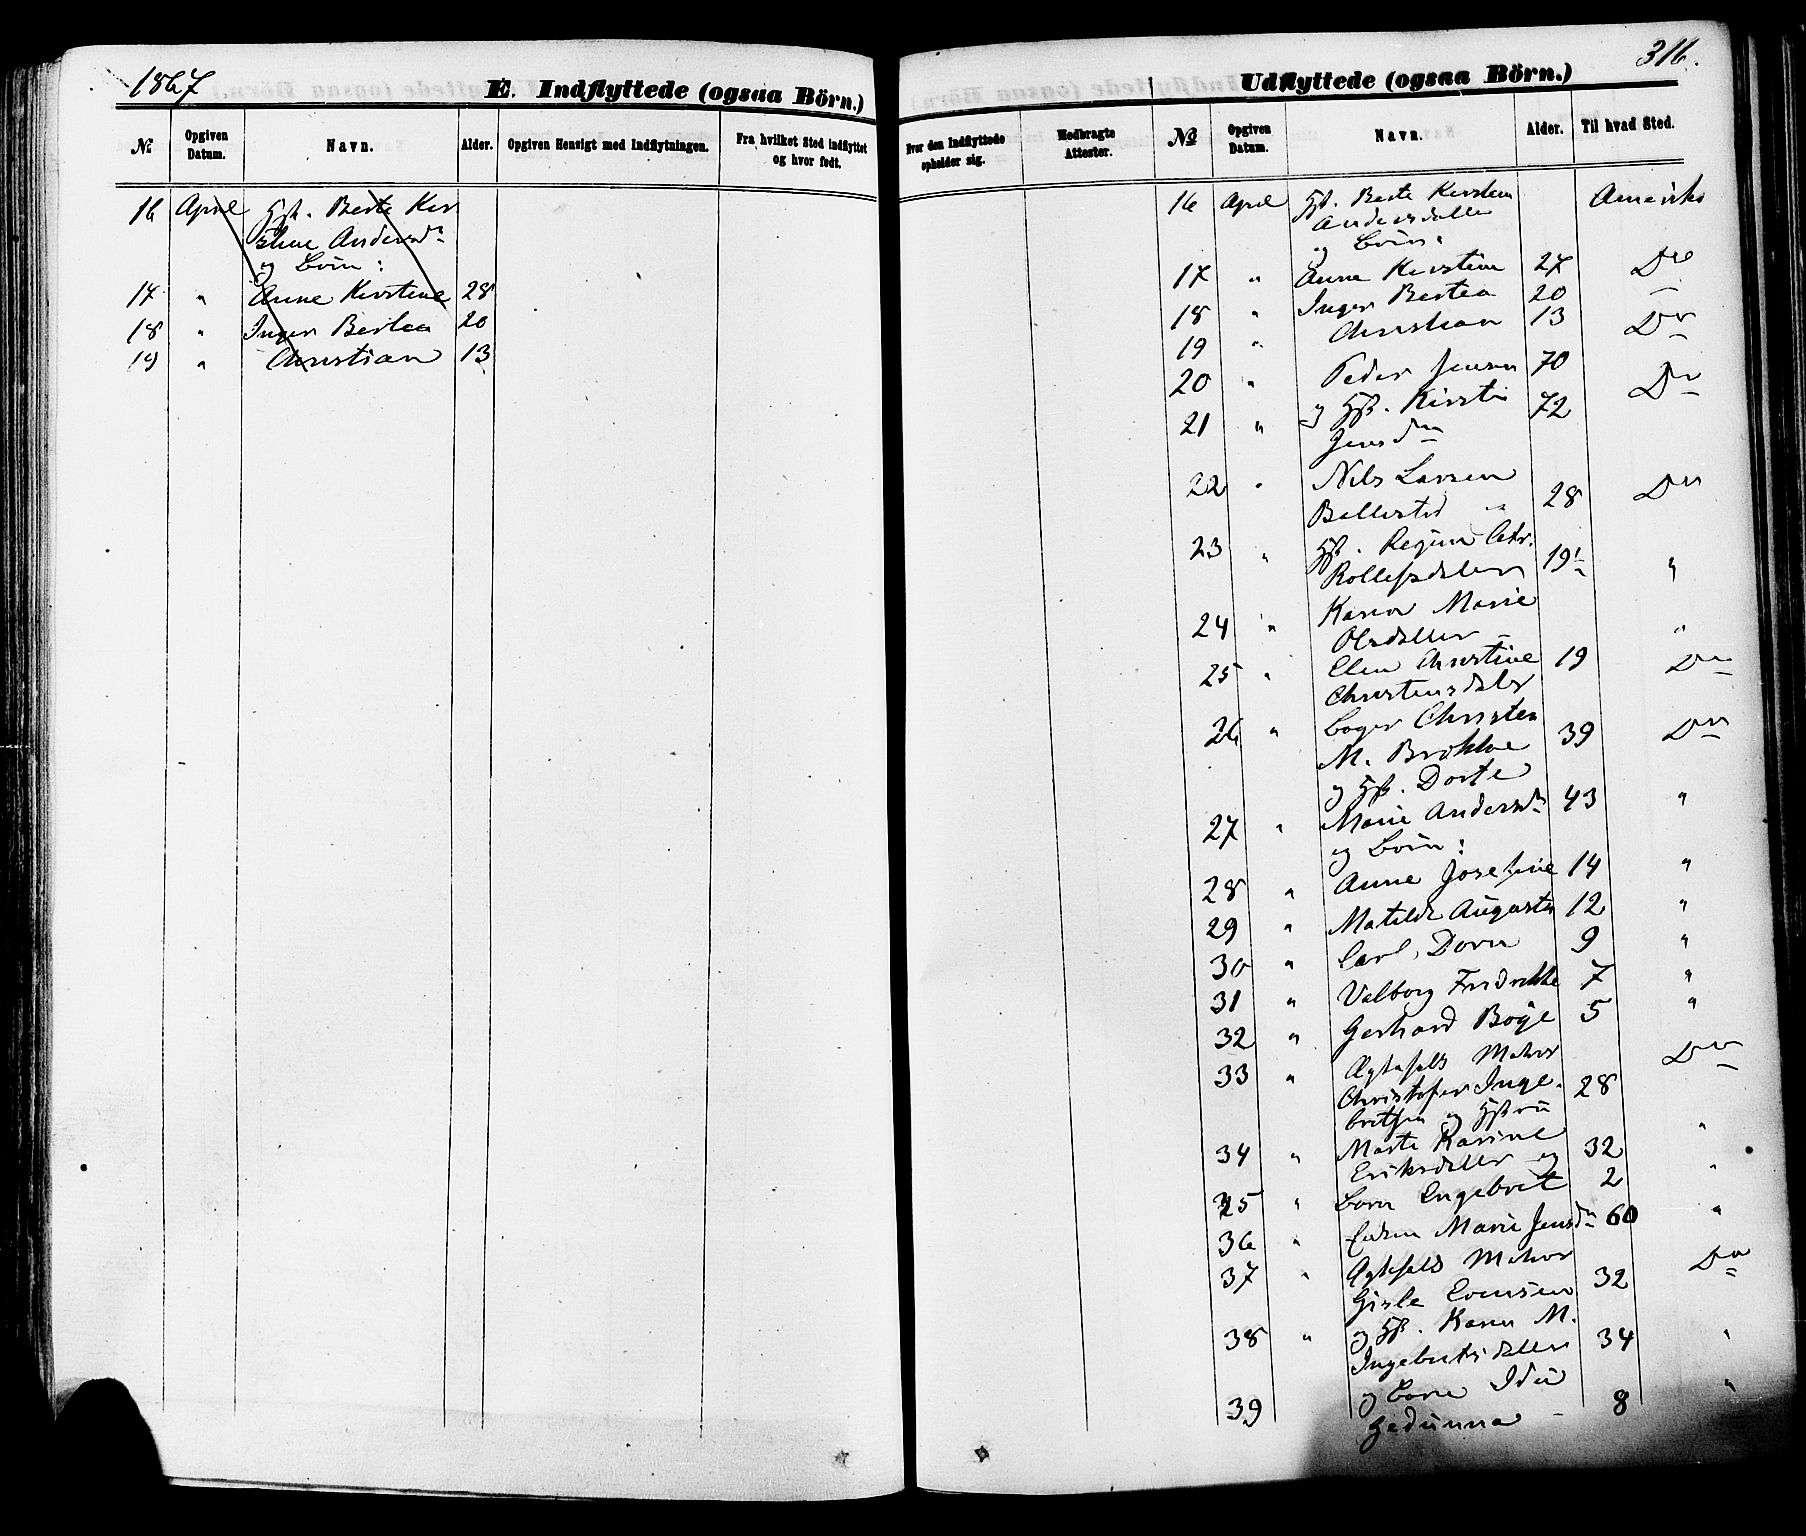 1867
E. Indflyttede (ogsaa Börn.)
No Opgiven Datum. Navn. Alder. Opgiven Hensigt med Indflytningen. Fra hvilket Sted indflyttet og hvor født.
16 April Hst. Berte Kir
stine Andersdr
og Børn:
17 " Anne Kirstine 28
18 " Inger Bertea 20
19 " Christian 13
316.
Udflyttede (ogsaa Börn.)
Hvor den Indflyttede opholder sig. Medbragte Attester. No Opgiven Datum. Navn. Alder. Til hvad Sted.
16 April Hst. Berte Kirstine Amerika
Andersdatter
og Børn:
17 " Anne Kirstine 27 Do
18 " Inger Bertea 20
19 " Christian 13 Do
20 " Peder Jensen 70
21 " og Hst. Kirsti 72 Do
Jensdr
22 " Nils Larsen
Ballestad 28 Do
23 " Hst. Regine Chr.
Rollefsdatter 19 "
24 " Karen Marie
Olsdatter "
25 " Elen Christine 19 Do
Christensdatter
26 " Christen
M. Brekke 39 Do
og Hst. Dorte
27 " Marie Andersdr 43 "
og Børn:
28 " Anne Josefine 14 "
29 " Matilde Augusta 12 "
30 " Carl 9 "
31 " Valborg Fredrikke 7 "
32 " Gerhard Boye 5 "
33 " Do
Christofer Inge- 28
britsen og Hstru
34 " Marte Karine
Eriksdatter og 32 "
35 " Barn Engebret 2 "
36 " Enken Marie Jensdr 60 "
37 " Do
Gisle Evensen 32
38 " og Hst. Karen M.
Ingebretsdatter 34 "
39 og Barn
8 "